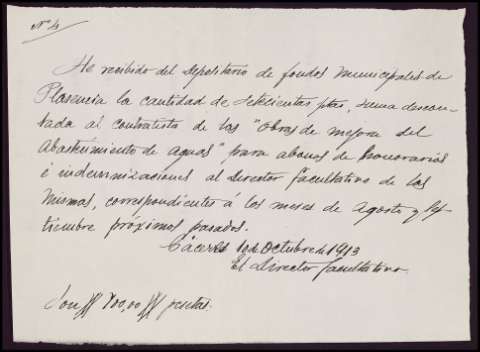 Nº 4
He recibido del Depositario de fondos Municipales de
Plasencia la cantidad de Setecientas ptas, suma descon-
tada al contratista de las "Obras de mejora del
Abastecimiento de Aguas" para abonos de honorarios
é indemnizaciones al Director facultativo de las
mismas, correspondientes á los meses de Agosto y Sep-
tiembre próximos pasados.
Cáceres 10 de Octubre de 1913
El Director facultativo
Son 700,00 pesetas.